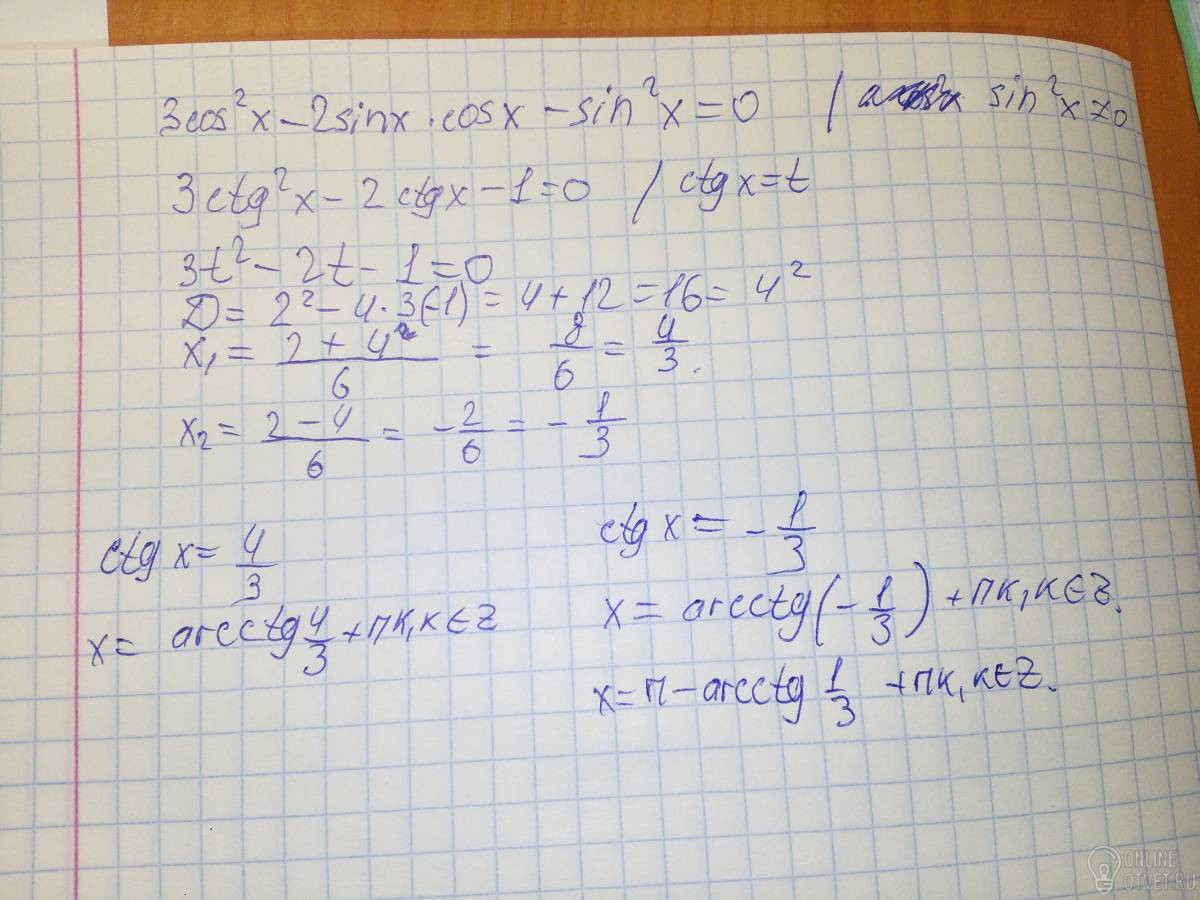 3cos²x − 2sinx · cosx − sin²x = 0 / sin²x ≠ 0
3ctg²x − 2ctgx − 1 = 0 / ctgx = t
3t² − 2t − 1 = 0
D = 2² − 4 · 3(−1) = 4 + 12 = 16 = 4²
x₁ = (2 + 4)/6 = 8/6 = 4/3.
x₂ = (2 − 4)/6 = −2/6 = −1/3
ctg x = 4/3
x = arcctg 4/3 + πk, k ∈ Z
ctg x = −1/3
x = arcctg(−1/3) + πk, k ∈ Z.
x = π − arcctg 1/3 + πk, k ∈ Z.
ONLINE
OTVET.RU